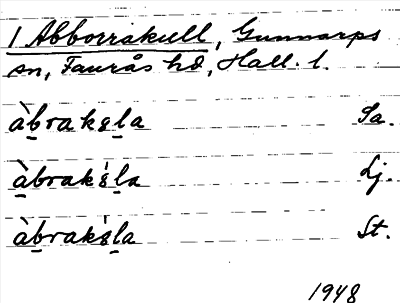 1 Abborrakull, Gunnarps
sn, Faurås hd, Hall. l.
àbrakṣla Sa.
àbraks̀la Lj.
àbraks̀la St.
1948